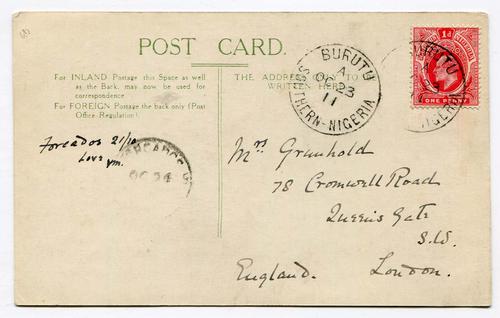 POST CARD.
For INLAND Postage this Space as well
as the Back, may now be used for
correspondence
For FOREIGN Postage the back only (Post
Office Regulation).
THE ADDRESS ONLY TO BE
WRITTEN HERE
BURUTU
A
OC 23
11
SOUTHERN-NIGERIA
1d
ONE PENNY
Forcados 21/10
Love
OC 24
Mrs Grunhold
78 Cromwell Road
Queen's Gate
S.W.
England. London.